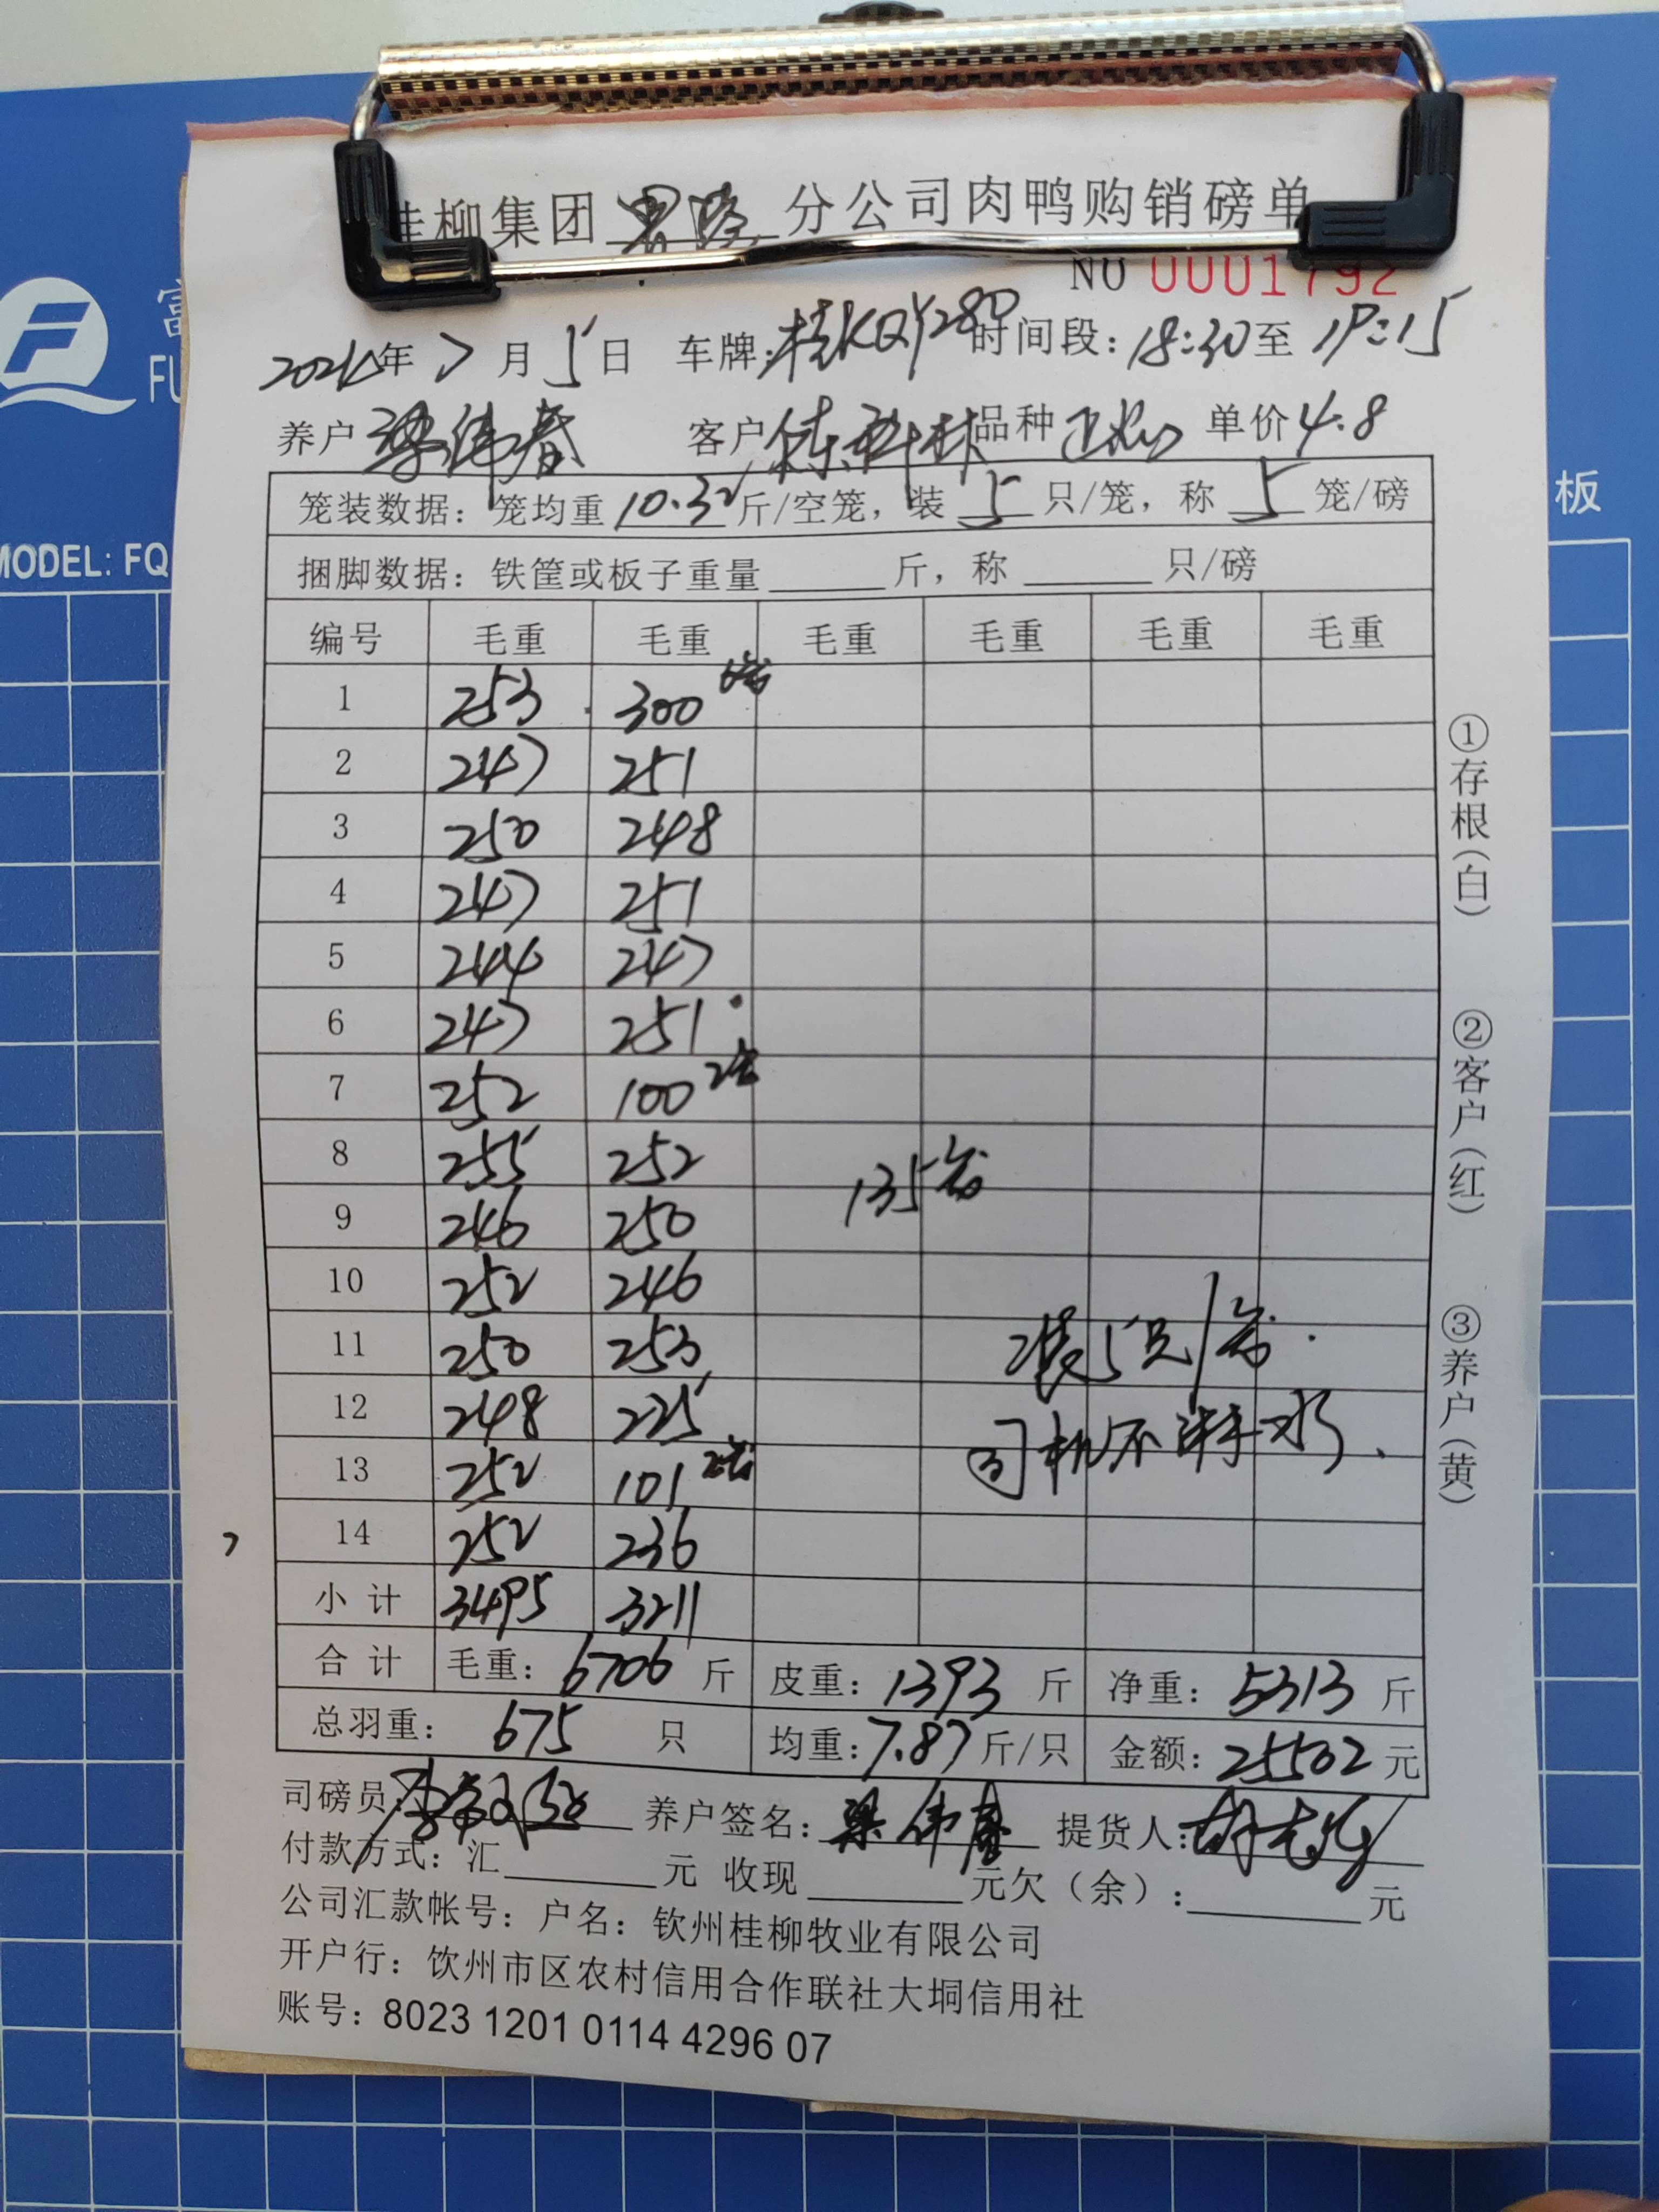 桂柳集团 分公司肉鸭购销磅单
NO 0001792
2024年7月5日 车牌:桂KQY280 时间段:18:30至19:15
养户 梁伟春 客户 陈科林 品种 单价4.8
笼装数据: 笼均重10.32斤/空笼, 装5只/笼, 称5笼/磅
捆脚数据: 铁筐或板子重量______斤, 称______只/磅
编号 毛重 毛重 毛重 毛重 毛重 毛重
1 253 300 6笼
2 247 251
3 250 248
4 247 251
5 244 247
6 247 251
7 252 100 2笼
8 255 252
135笼
9 246 250
10 252 246
11 250 253
装5只/笼.
12 248 225
司机不淋水.
13 252 101 2笼
14 252 236
小计 3495 3211
合计 毛重: 6706斤 皮重: 1393斤 净重: 5313斤
总羽重: 675只 均重: 7.87斤/只 金额: 25502元
司磅员: 养户签名: 梁伟春 提货人:
付款方式: 汇______元 收现______元欠(余):______元
公司汇款帐号: 户名: 钦州桂柳牧业有限公司
开户行: 钦州市区农村信用合作联社大垌信用社
账号: 8023 1201 0114 4296 07
①存根(白)
②客户(红)
③养户(黄)
富
FU
MODEL: FQ
板